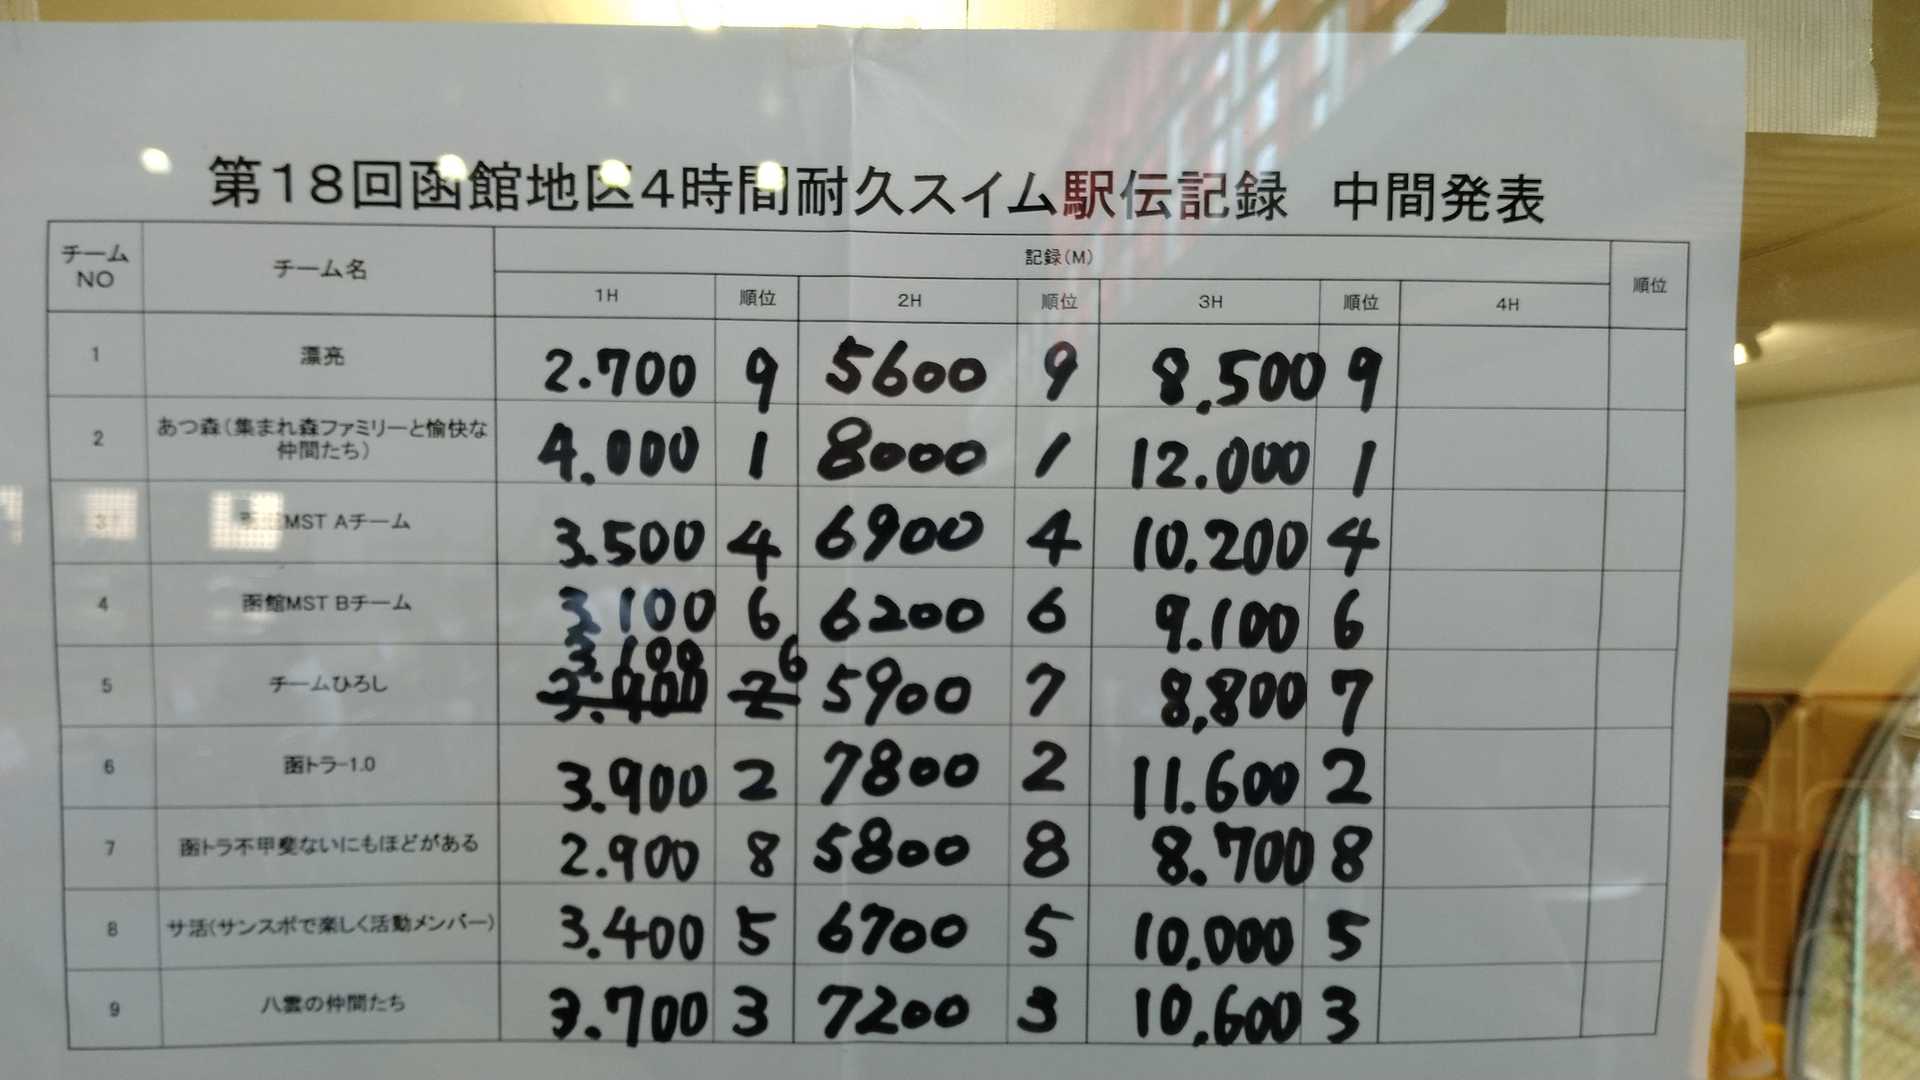 第18回函館地区4時間耐久スイム駅伝記録　中間発表
チームNO チーム名 記録(M) 順位
1H 順位 2H 順位 3H 順位 4H
1 漂亮 2.700 9 5600 9 8.500 9
2 あつ森(集まれ森ファミリーと愉快な
仲間たち) 4.000 1 8000 1 12.000 1
3 MST Aチーム 3.500 4 6900 4 10.200 4
4 函館MST Bチーム 3.100 6 6200 6 9.100 6
5 チームひろし 3.100 6 5900 7 8,800 7
6 函トラ-1.0 3.900 2 7800 2 11.600 2
7 函トラ不甲斐ないにもほどがある 2.900 8 5800 8 8.700 8
8 サ活(サンスポで楽しく活動メンバー) 3.400 5 6700 5 10,000 5
9 八雲の仲間たち 3.700 3 7200 3 10,600 3